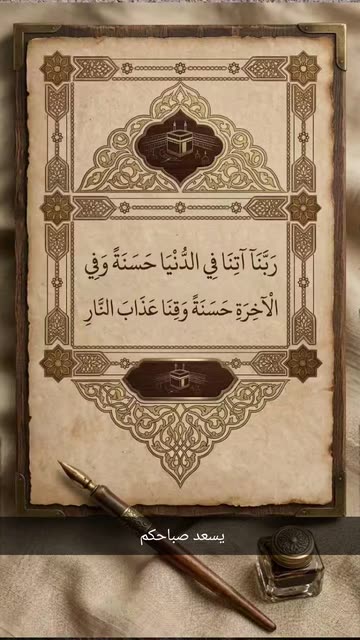 رَبَّنَآ آتِنَا فِي الدُّنْيَا حَسَنَةً وَفِي
الْآخِرَةِ حَسَنَةً وَقِنَا عَذَابَ النَّارِ
يسعد صباحكم